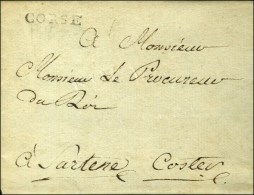 CORSE
A Monsieur
Monsieur Le Procureur
Du Roi
A Sartene Coster